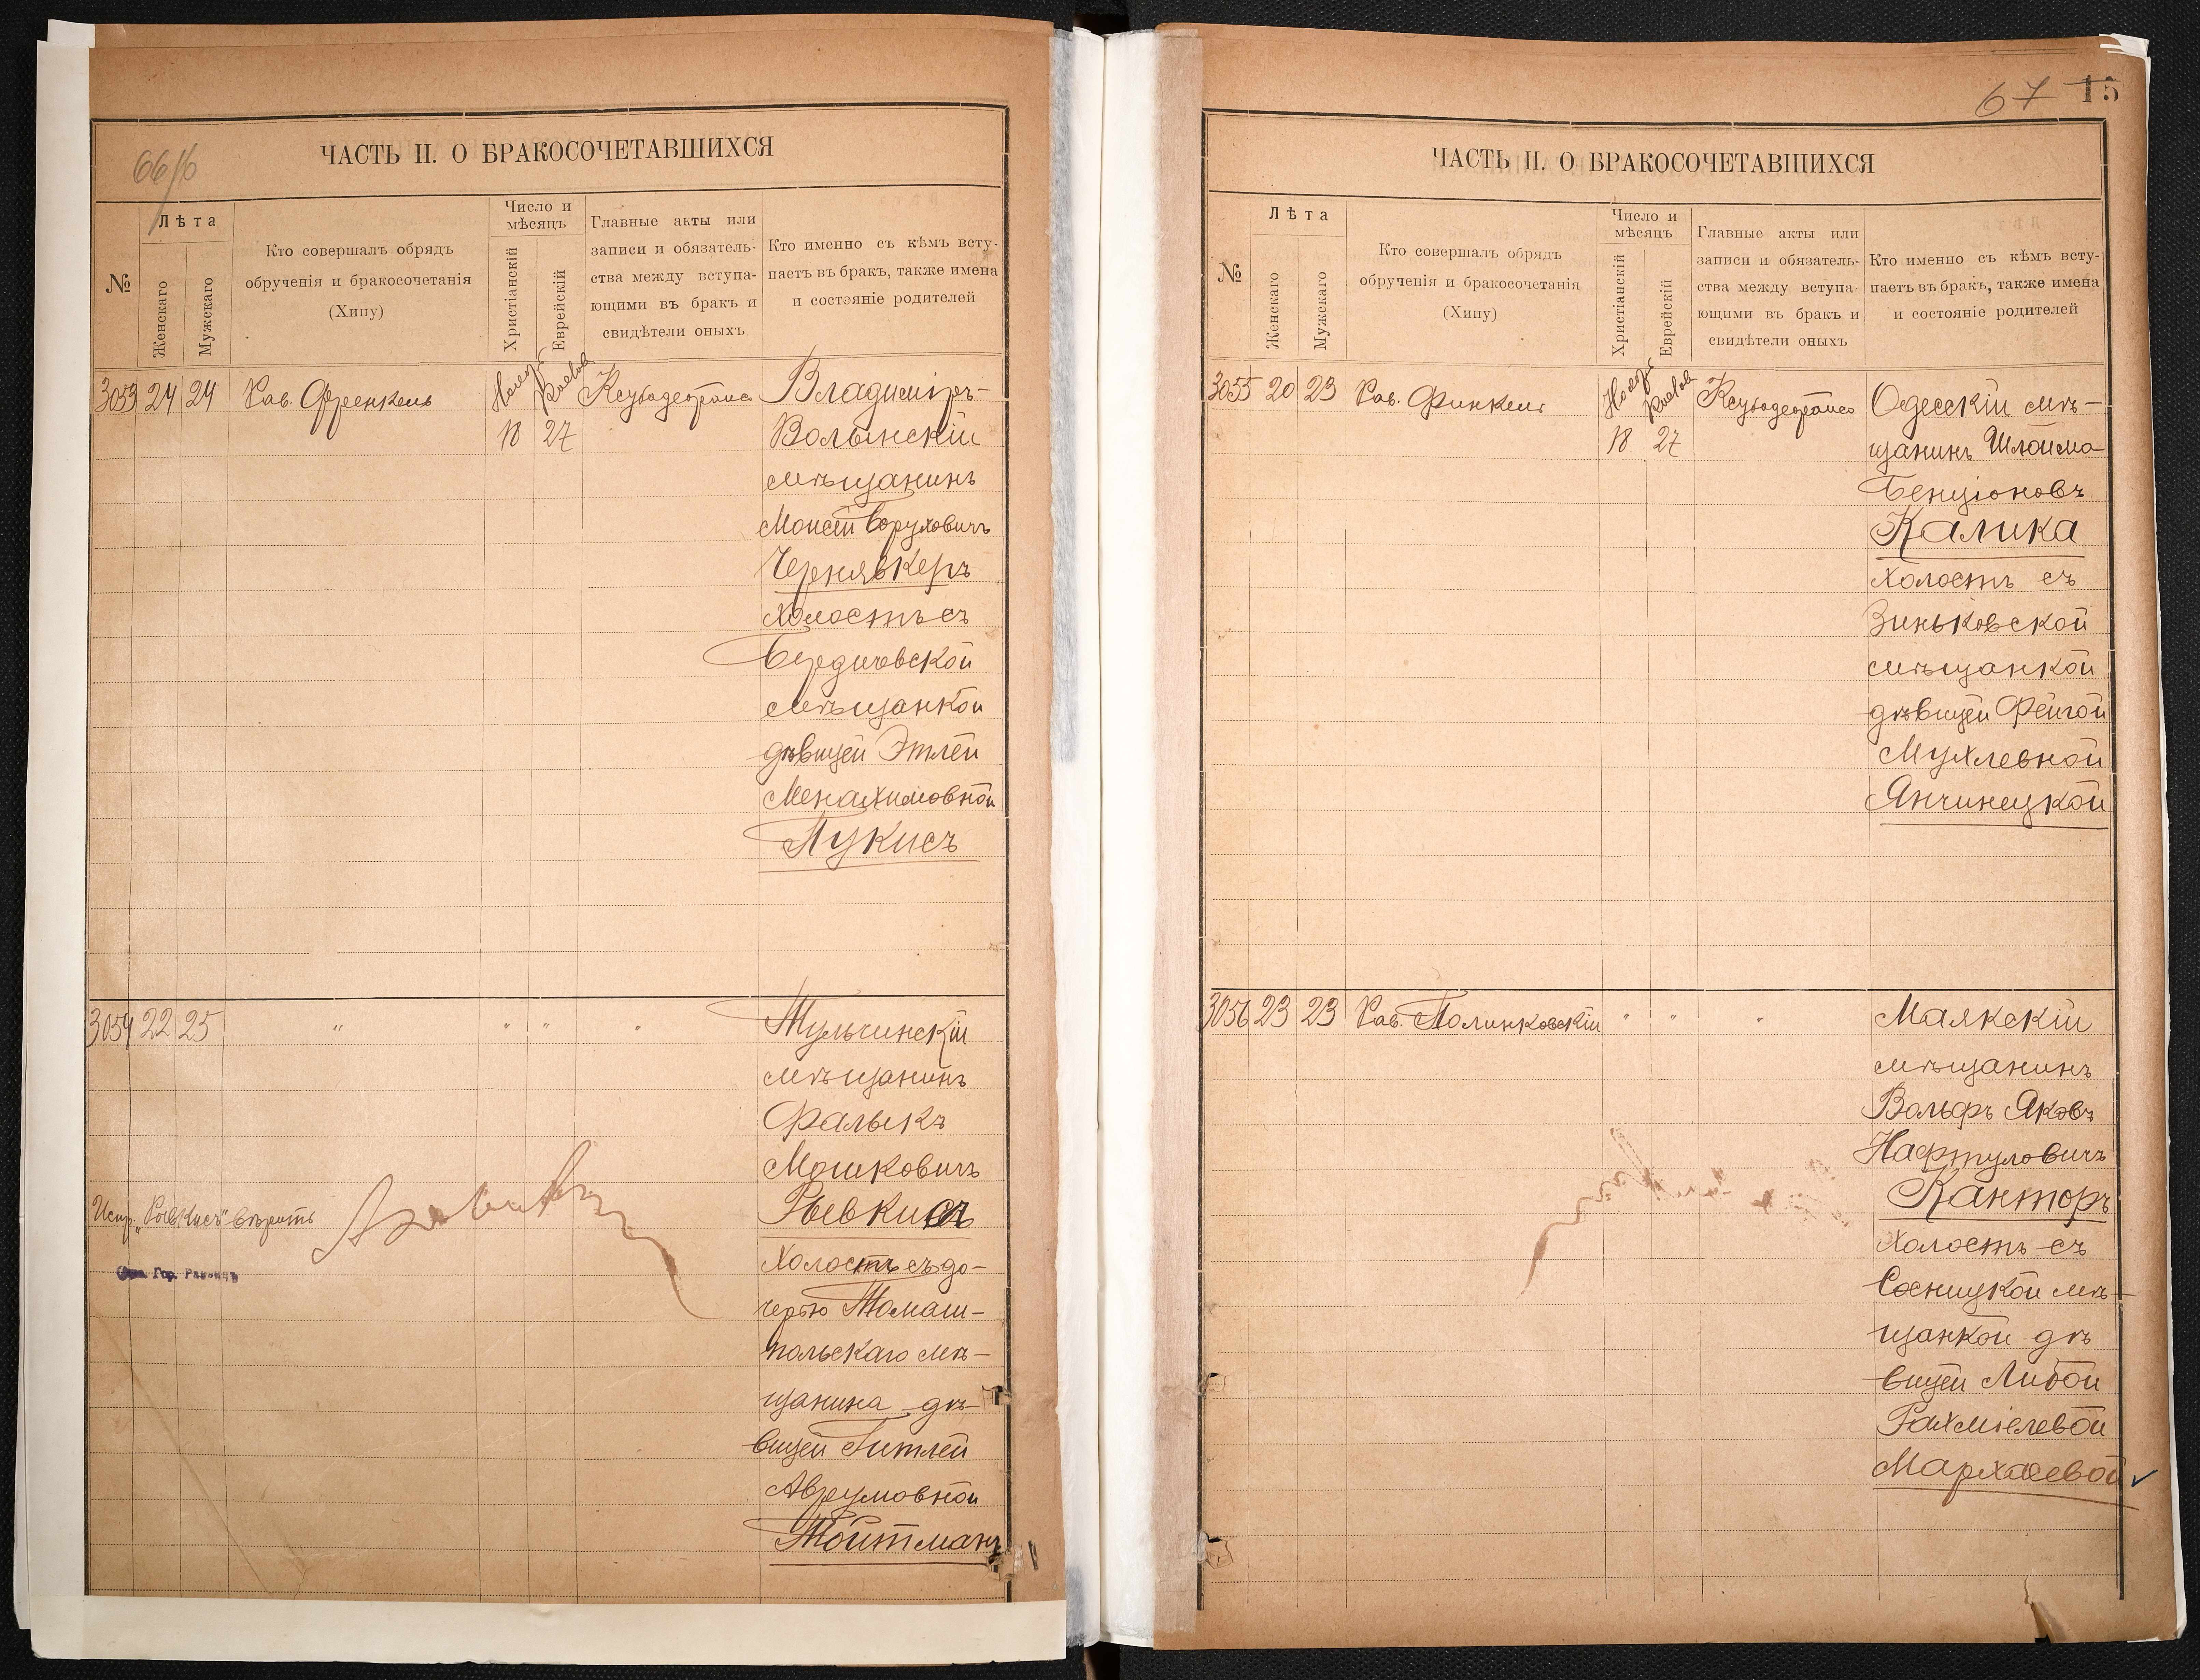 66/б
ЧАСТЬ II. О БРАКОСОЧЕТАВШИХСЯ
№
Лѣта
Женскаго
Мужскаго
Кто совершалъ обрядъ
обрученія и бракосочетанія
(Хипу)
Число и
мѣсяцъ
Христіанскій
Еврейскій
Главные акты или
записи и обязатель-
ства между вступа-
ющими въ бракъ и
свидѣтели оныхъ
Кто именно съ кѣмъ всту-
паетъ въ бракъ, также имена
и состояніе родителей
3053 24 24 Рав. Френкель
18 27
Владимiръ-
Волынскій
мѣщанинъ
Моисей Борухович
Чернявкеръ
холостъ съ
Бердичевской
мѣщанкой
дѣвицей Этлей
Менахимовной
Пукисъ
3054 22 25 " " " "
Тульчинскій
мѣщанинъ
Фалыкъ
Мошковичъ
Рывкисъ
холостъ съ до-
черью Томаш-
польскаго мѣ-
щанина дѣ-
вицей Гитлей
Аврумовной
Тойтманъ
Испр. "Рывкисъ" вѣрить
Гор. Раввинъ
67 15
ЧАСТЬ II. О БРАКОСОЧЕТАВШИХСЯ
№
Лѣта
Женскаго
Мужскаго
Кто совершалъ обрядъ
обрученія и бракосочетанія
(Хипу)
Число и
мѣсяцъ
Христіанскій
Еврейскій
Главные акты или
записи и обязатель-
ства между вступа-
ющими въ бракъ и
свидѣтели оныхъ
Кто именно съ кѣмъ всту-
паетъ въ бракъ, также имена
и состояніе родителей
3055 20 23 Рав. Финкель
18 27
Одесскій мѣ-
щанинъ Шлойма
Бенціоновъ
Калика
холостъ съ
Зиньковской
мѣщанкой
дѣвицей Фейгой
Мухлевной
Янчинецкой
3056 23 23 Рав. Полинковскій " " "
Маякскій
мѣщанинъ
Вольфъ Яковъ
Нафтуловичъ
Канторъ
холостъ съ
Сосницкой мѣ-
щанкой дѣ
вицей Либой
Рахміелевой
Мархасевой